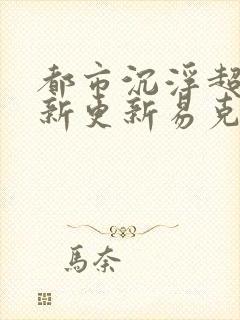 都市沉浮超
新更新易克
馬奈